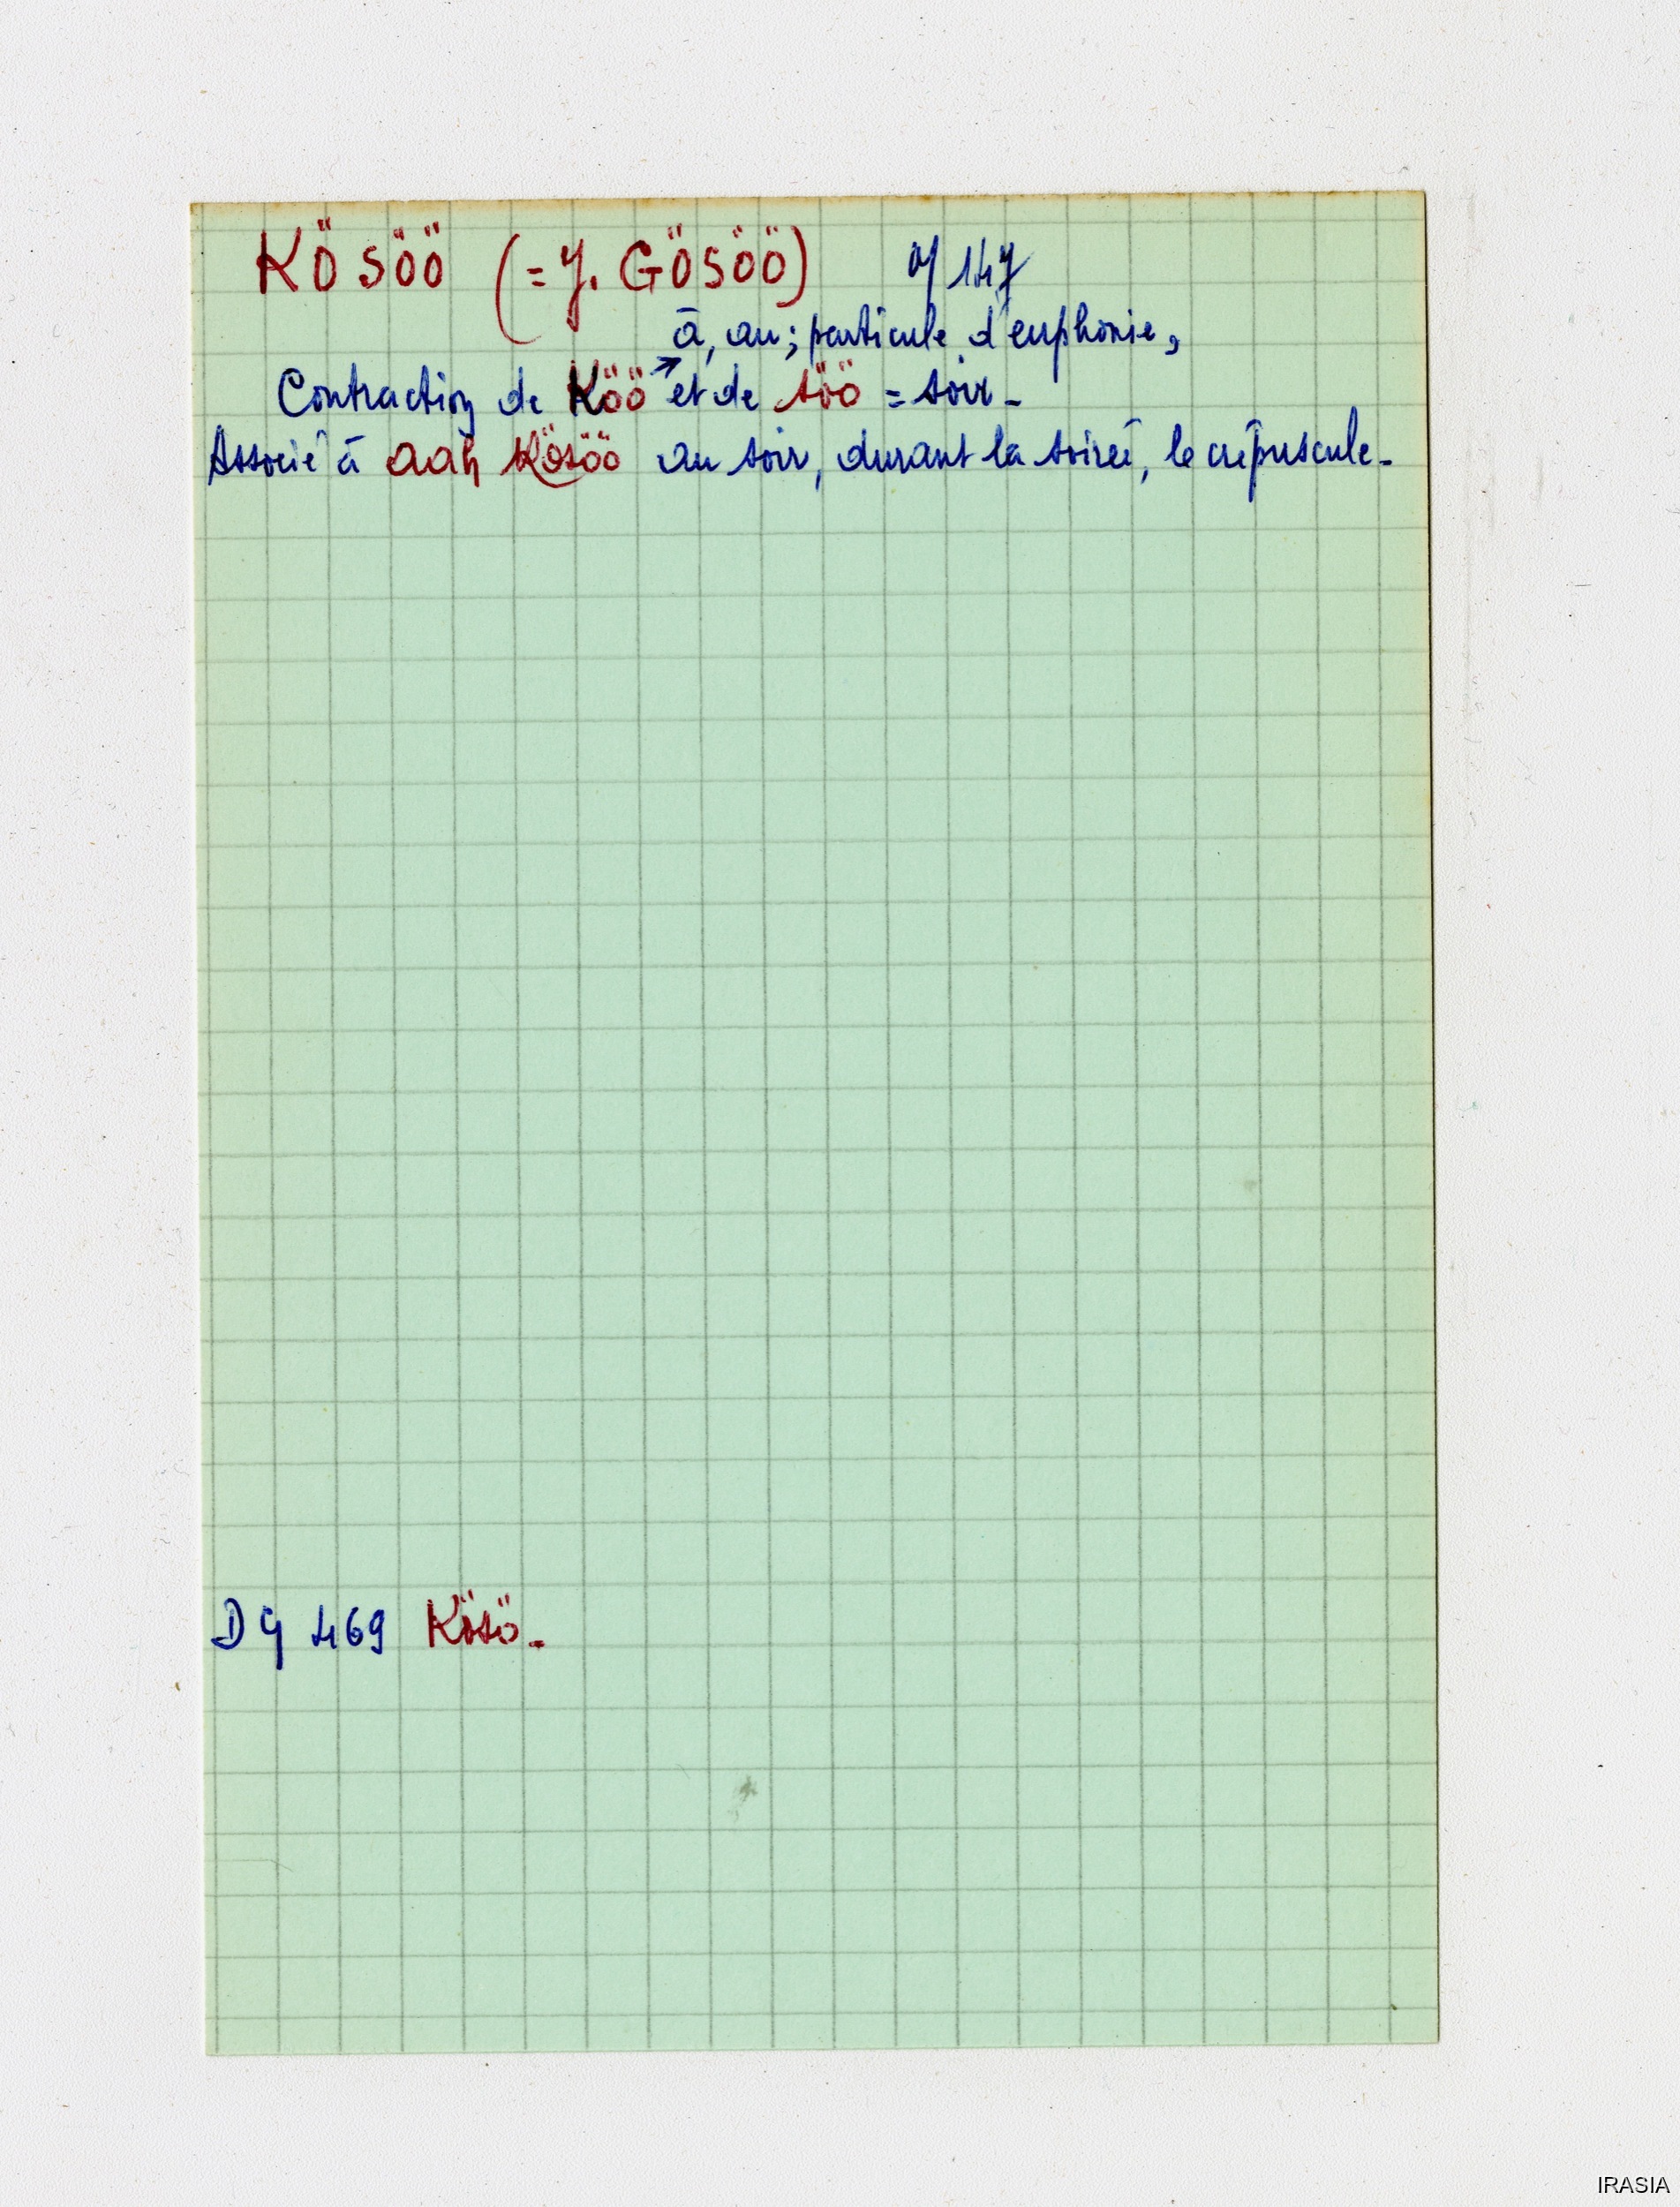 KÖSÖÖ (= y. GÖSÖÖ) 147
à, au; particule d'euphonie,
Contraction de Köö et de söö = soir -
Associé à aah Kösöö au soir, durant la soirée, le crépuscule -
DG 469 Kösö -
IRASIA